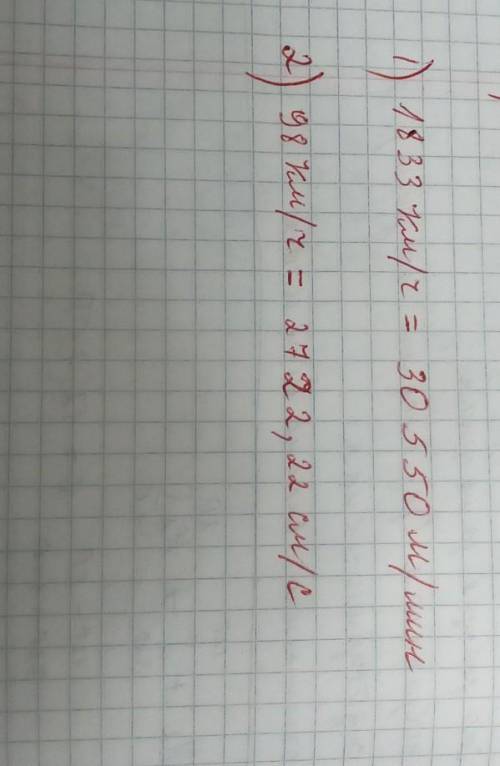 1) 1833 км/ч = 30 550 м/мин
2) 98 км/ч = 2722,22 см/с